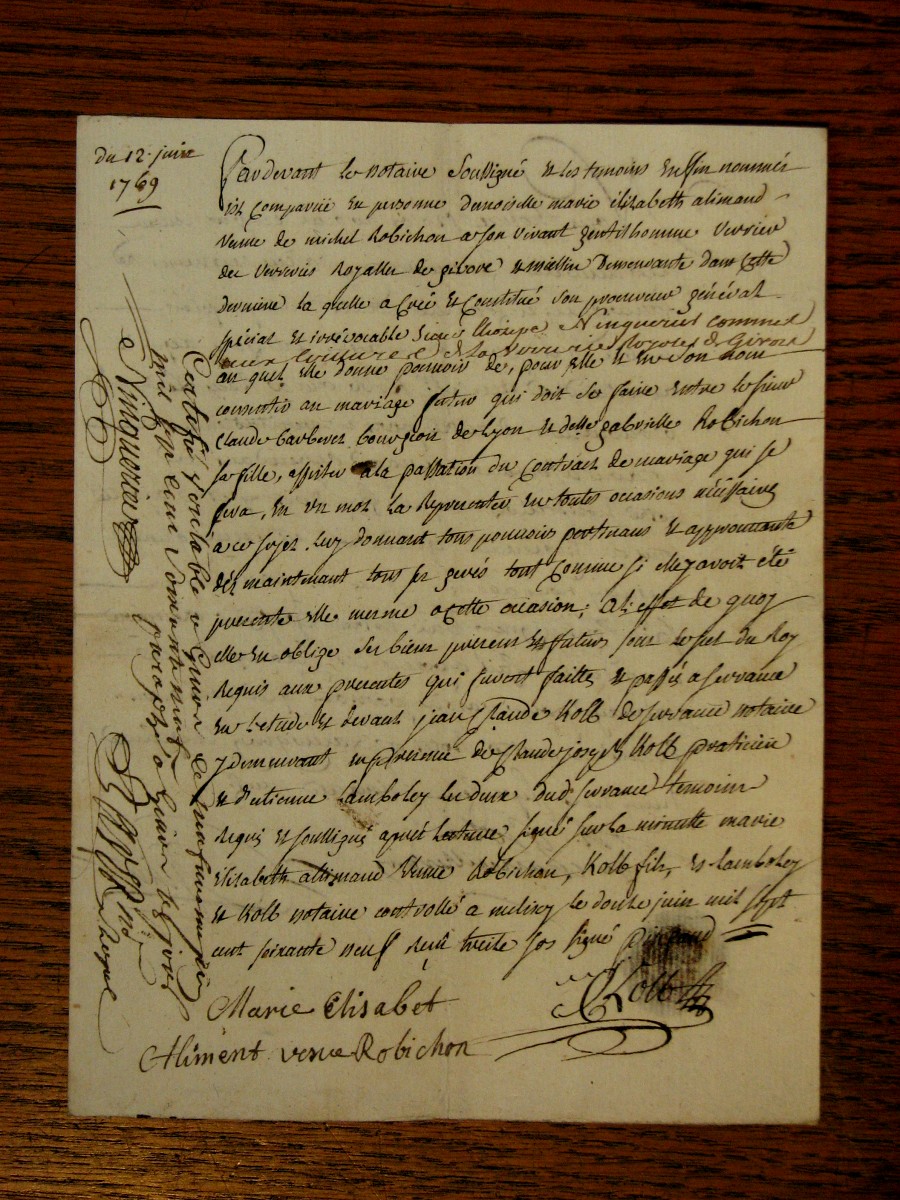 du 12 juin
1769
Pardevant le notaire soussigné et les temoins enfin nommés
est comparüe en personne demoiselle marie élisabeth alimand
veuve de michel Robichon a son vivant gentilhomme verrier
des verreries Royalles de givors et miellin demeurante dans cette
derniere la quelle a créé et constitué son procureur général
spécial et irrévocable sieur Ninquerier commis
aux de la verrerie royale de Givors
au quel elle donne pouvoir de, pour elle et en son nom
consentir au mariage futur qui doit se faire entre le sieur
Claude bourgeois de Lyon et delle gabrielle Robichon
sa fille, assister a la passation du contract de mariage qui se
fera, en un mot la representer en toutes occasions nécessaires
a ce sujet, luy donnant tous pouvoirs pertinans et approuvante
dès maintenant tout comme si elle y avoit été
presente elle mesme a cette occasion; a l'effet de quoy
elle en oblige ses biens presens et futurs sous le scel du Roy
Requis aux presentes qui furent faittes et passés a servance
en l'etude et devant jean Claude Kolb de servance notaire
y demeurant en presence de Claude joseph Kolb praticien
et d'etienne Lamboley les deux dud. servance temoins
Requis et soussignés aprés lecture signé sur la minutte marie
elisabeth allimand veuve Robichon, Kolb fils, et Lamboley
et Kolb notaire controllé a melisey le douze juin mil sept
cent soixante neuf receu treize sos signé
Kolb
Marie Elisabet
Aliment veuve Robichon
Certifié veritable a
mil sept cent soixante neuf paraphé a
Ninquerier